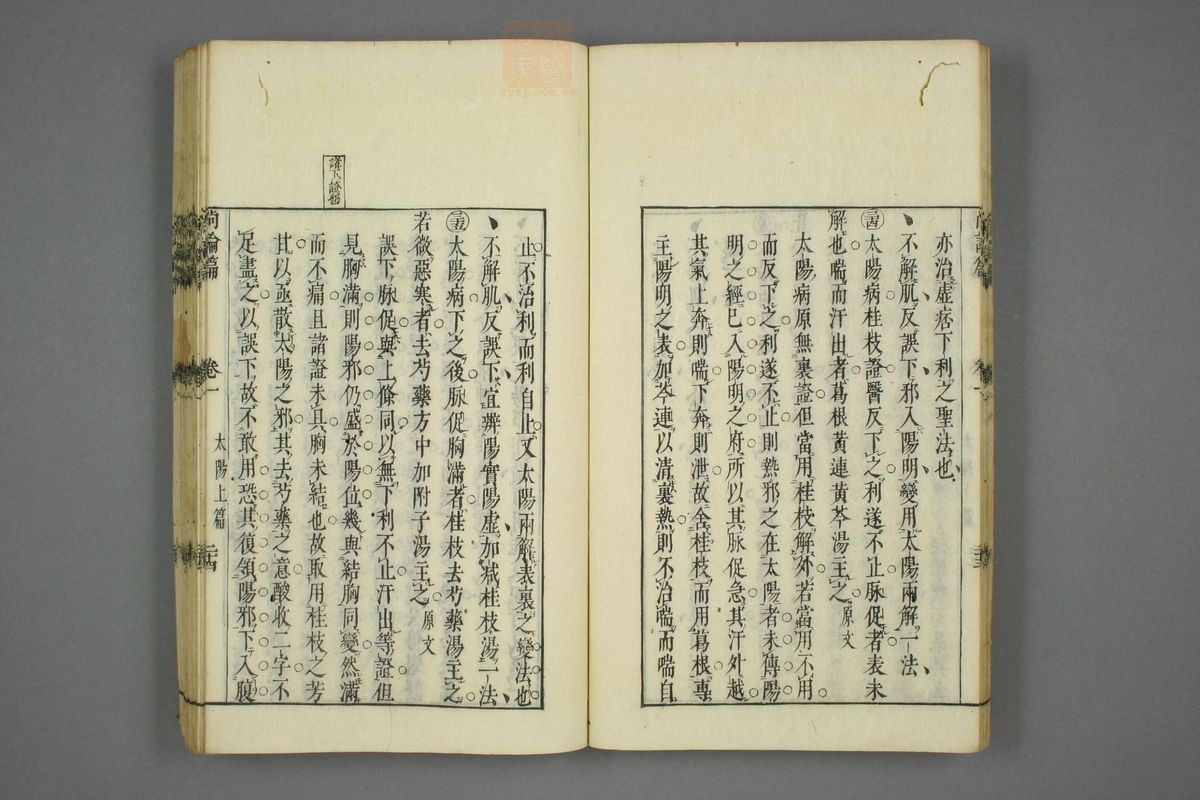 亦治虛痞下利之聖法也
不解肌反誤下邪入陽明變用太陽兩解一法
太陽病桂枝證醫反下之利遂不止脉促者表未
解也喘而汗出者葛根黃連黃芩湯主之 原文
太陽病原無裏證但當用桂枝解外若當用不用
而反下之利遂不止則熱邪之在太陽者未傳陽
明之經已入陽明之府所以其脉促急其汗外越
其氣上奔則喘下奔則泄故舍桂枝而用葛根專
主陽明之表加芩連以清裏熱則不治喘而喘自
止不治利而利自止又太陽兩解表裏之變法也
不解肌反誤下宜辨陽實陽虛加减桂枝湯一法
太陽病下之後脉促胸滿者桂枝去芍藥湯主之
若微惡寒者去芍藥方中加附子湯主之 原文
誤下脉促與上條同以無下利不止汗出等證但
見胸滿則陽邪仍盛於陽位幾與結胸同變然滿
而不痛且諸證未具胸未結也故取用桂枝之芳
其以亟散太陽之邪其去芍藥之意酸收二字不
足盡之以誤下故不敢用恐其復領陽邪下入腹
尚論篇 卷一 太陽上篇